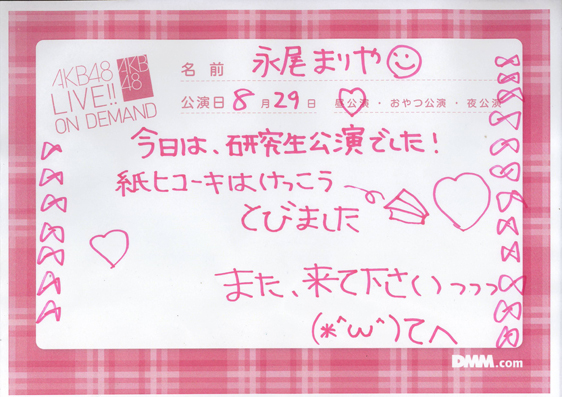 AKB48
LIVE!!
ON DEMAND
AKB
48
名前 永尾まりや
公演日 8月29日 昼公演・おやつ公演・夜公演
今日は、研究生公演でした!
紙ヒコーキはけっこう
とびました
また、来て下さいっっっ
(*^ω^)てへ
DMM.com